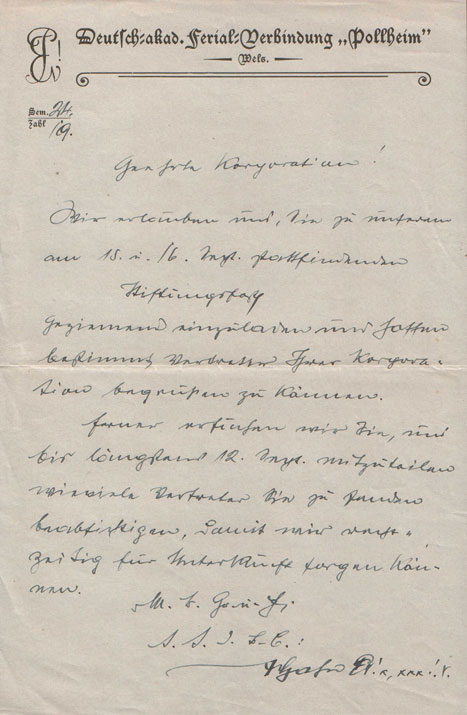 Deutsch-akad. Ferial-Verbindung „Pollheim“
Wels.
Sem. 24.
Zahl 19.
Geehrte Korporation!
Wir erlauben uns, Sie zu unserem
am 15. u. 16. Sept. stattfindenden
Stiftungsfest
geziemend einzuladen und hoffen
bestimmt Vertreter Ihrer Korpora-
tion begrüßen zu können.
Ferner ersuchen wir Sie, uns
bis längstens 12. Sept. mitzuteilen
wieviele Vertreter Sie zu senden
beabsichtigen, damit wir recht-
zeitig für Unterkunft sorgen kön-
nen.